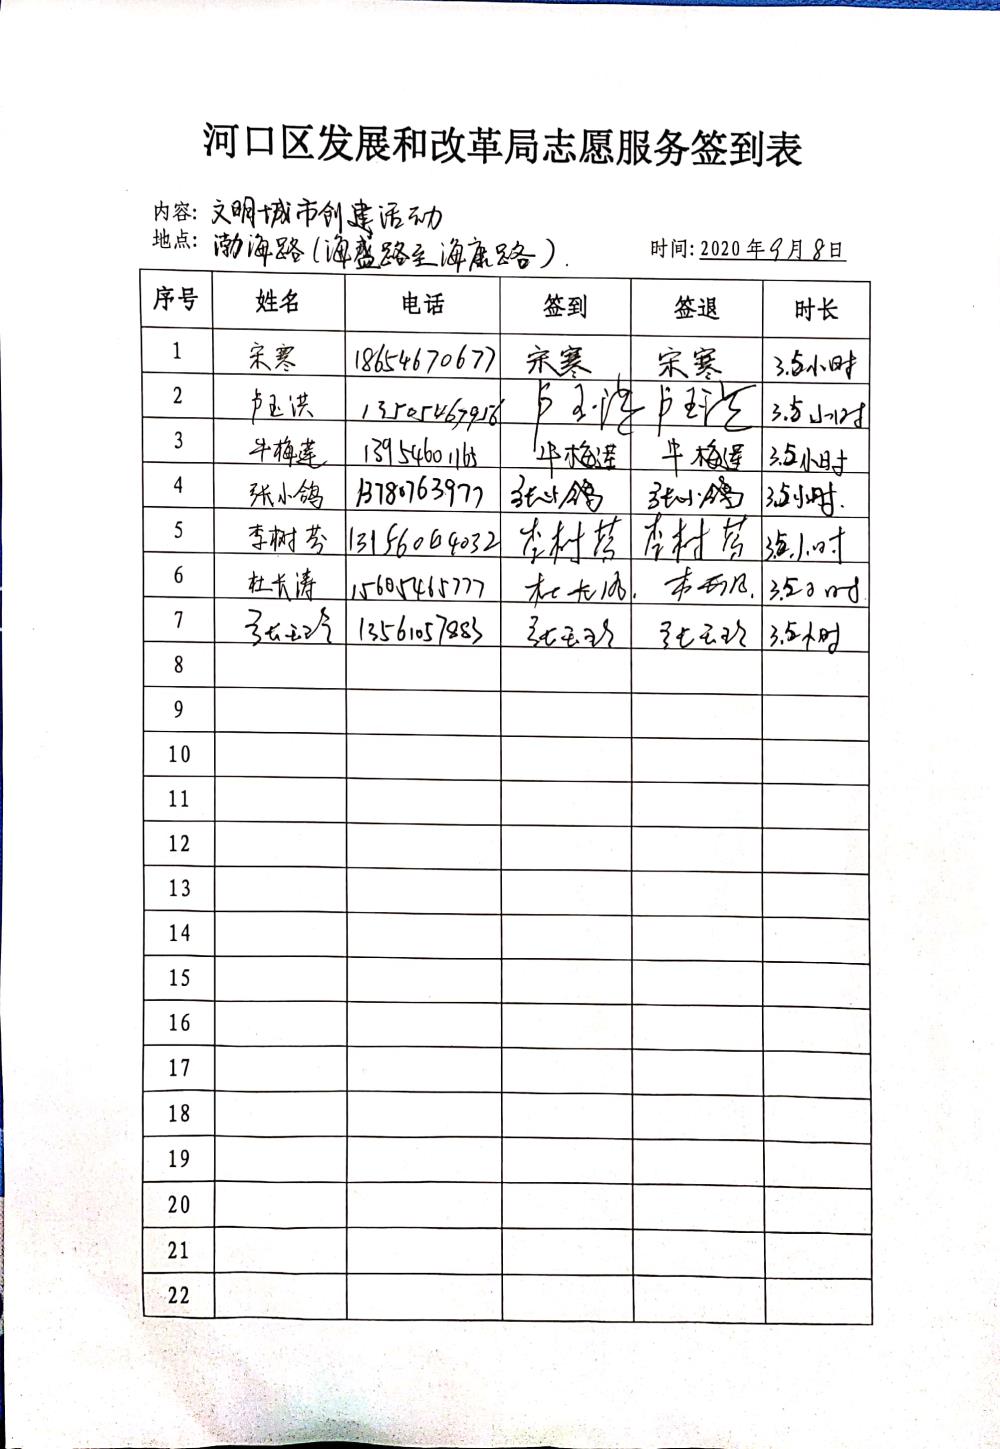 河口区发展和改革局志愿服务签到表
内容: 文明城市创建活动
地点: 渤海路(海盛路至海康路). 时间: 2020年9月8日
序号 姓名 电话 签到 签退 时长
1 宋寒 18654670677 宋寒 宋寒 3.5小时
2 卢玉洪 13505467956 卢玉洪 卢玉洪 3.5小时
3 牛梅莲 13954601163 牛梅莲 牛梅莲 3.5小时
4 张小鸽 13780763977 张小鸽 张小鸽 3.5小时.
5 李树芬 13156064032 李树芬 李树芬 3.5小时
6 杜长涛 15605465777 3.5小时
7 张玉玲 13561057883 张玉玲 张玉玲 3.5小时
8
9
10
11
12
13
14
15
16
17
18
19
20
21
22